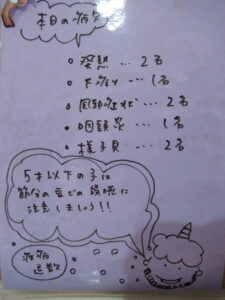 本日の病欠
○ 発熱 … 2名
○ 下痢 … 1名
○ 風邪症状 … 2名
○ 咽頭炎 … 1名
○ 様子見 … 2名
5才以下の子は
節分の豆での誤嚥に
注意しましょう!!
退散